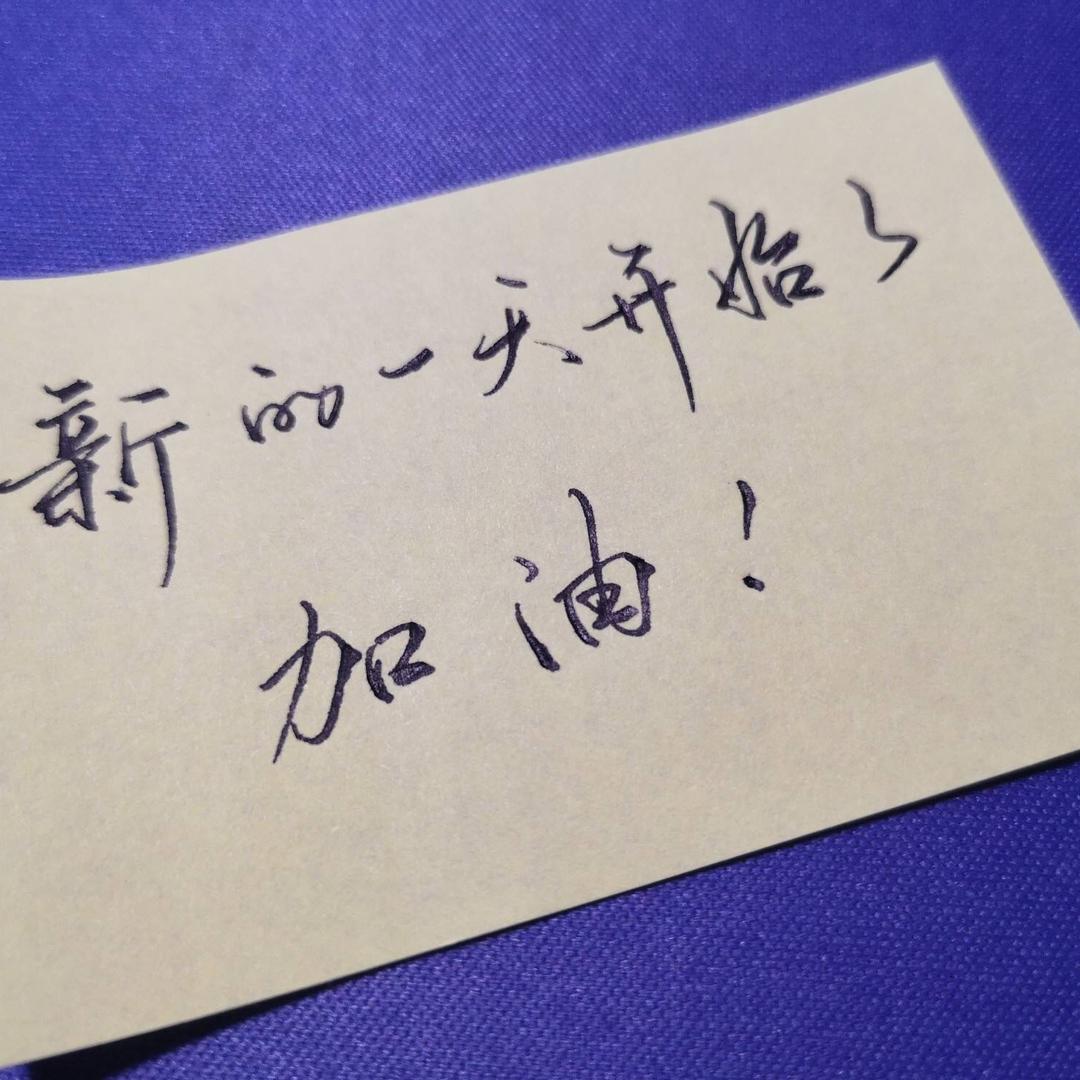 新的一天开始了
加油！